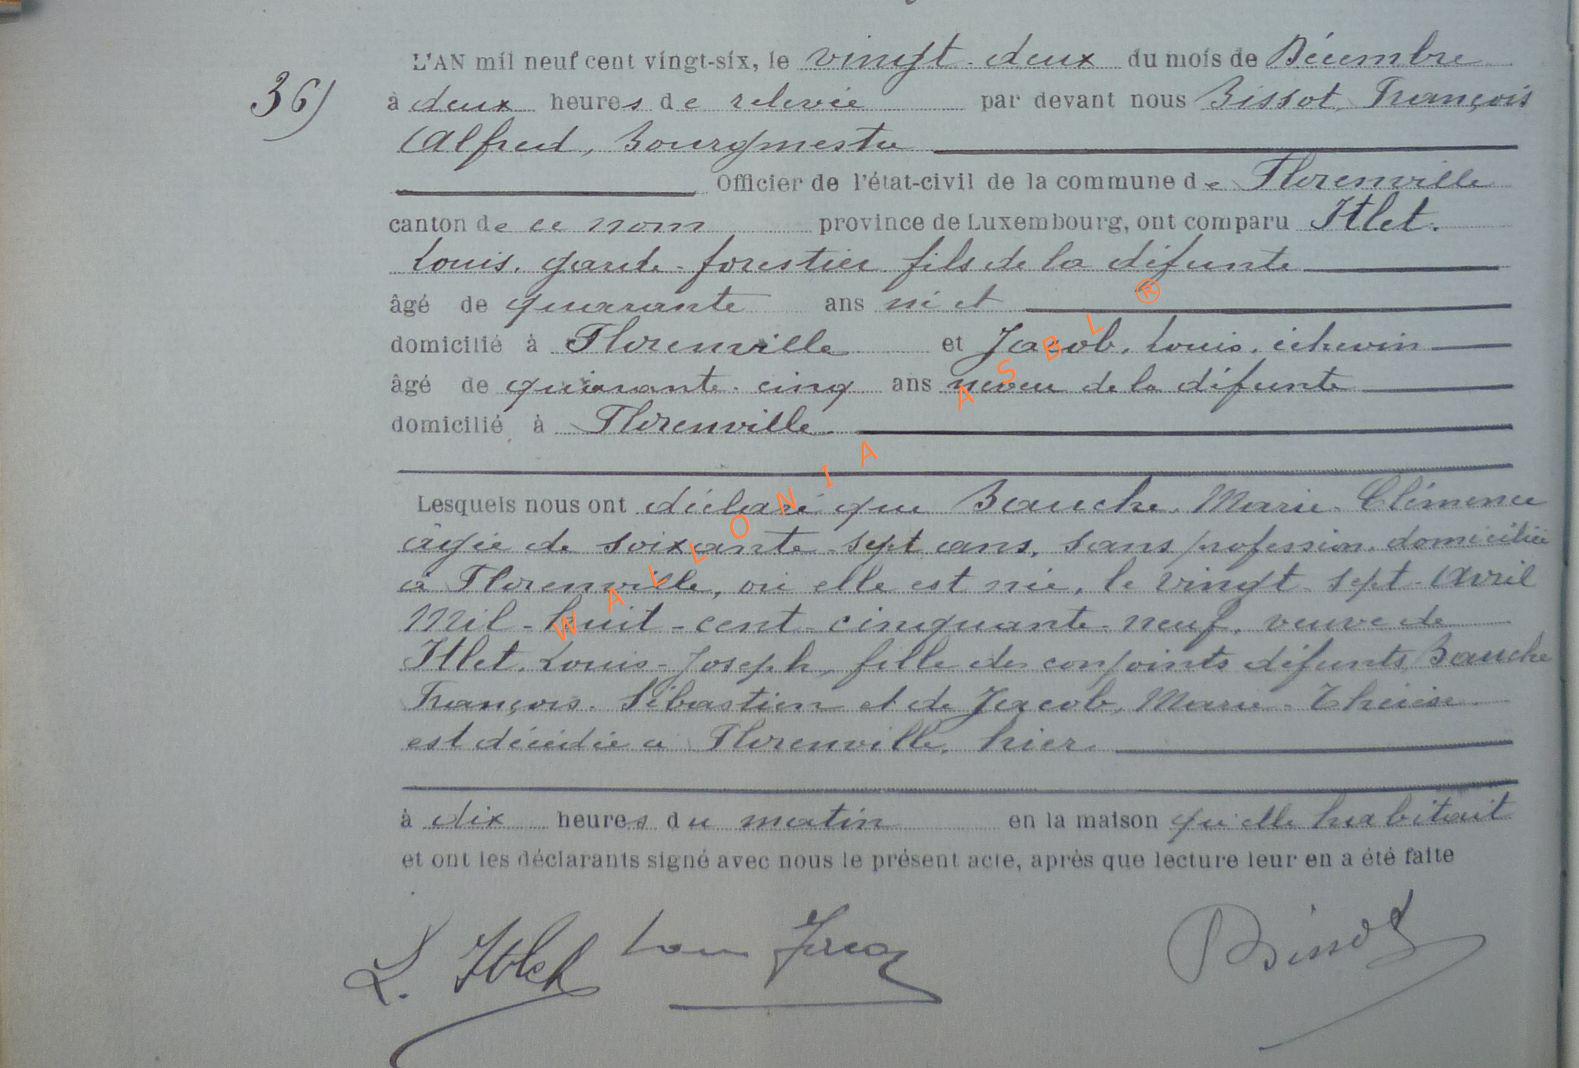 36)
L'AN mil neuf cent vingt-six, le vingt-deux du mois de Décembre
à deux heures de relevée par devant nous Bissot, François
Alfred, Bourgmestre
Officier de l'état-civil de la commune de Florenville
canton de ce nom province de Luxembourg, ont comparu Itlet.
Louis, garde-forestier fils de la défunte
âgé de quarante ans né et
domicilié à Florenville et Jacob, Louis, échevin
âgé de quarante-cinq ans neveu de la défunte
domicilié à Florenville
Lesquels nous ont déclaré que Bauche, Marie-Clémence
âgée de soixante-sept ans, sans profession, domiciliée
à Florenville, où elle est née, le vingt-sept-Avril
Mil-huit-cent-cinquante-neuf, veuve de
Itlet, Louis-Joseph, fille des conjoints défunts Bauche
François-Sébastien et de Jacob, Marie-Thérèse
est décédée à Florenville, hier
à dix heures du matin en la maison qu'elle habitait
et ont les déclarants signé avec nous le présent acte, après que lecture leur en a été faite
L. Itlet Louis Jacob Bissot
WALLONIA ASBL ®